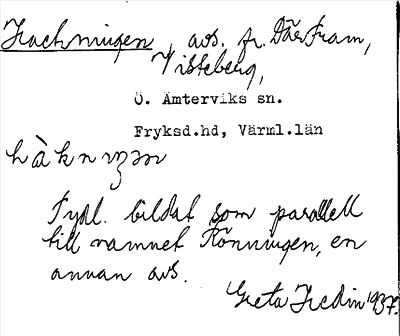 Hackningen, avs. fr. Där fram,
Visteberg,
Ö. Ämterviks sn.
Fryksd.hd, Värml.län
hàkniŋən
Tydl. bildat som parallell
till namnet Rönningen, en
annan avs.
Greta Hedin 1937.